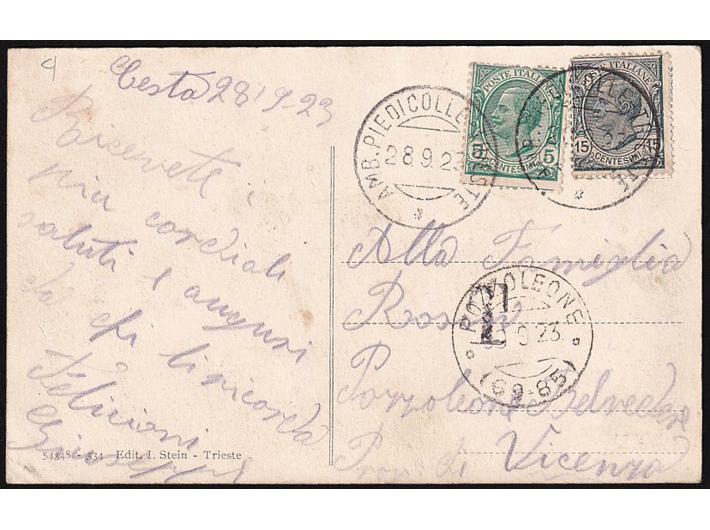 4
Cesta 28/9-23
Ricevete i
più cordiali
saluti e auguri
da chi li ricorda
Felicioni
Giuseppe
54848 - 334 Edit. I. Stein - Trieste
AMB. PIEDICOLLE TRIESTE
28.9.23
POSTE ITALIANE
5 5
CENTESIMI
POSTE ITALIANE
15 15
CENTESIMI
Alla Famiglia
POZZOLEONE
9.23
(69-85)
Pozzoleone Belvedere
Prov. di Vicenza